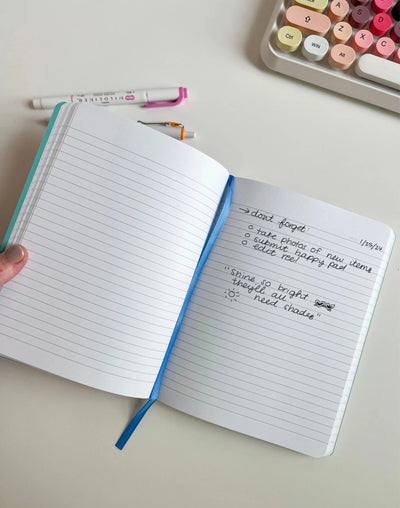 Ctrl
Win
Alt
Z
X
A
S
MILDLINER
1/29/24
→ don't forget:
o take photos of new items
o submit happy pad
o edit reel
"Shine so bright
they'll all
need shades"